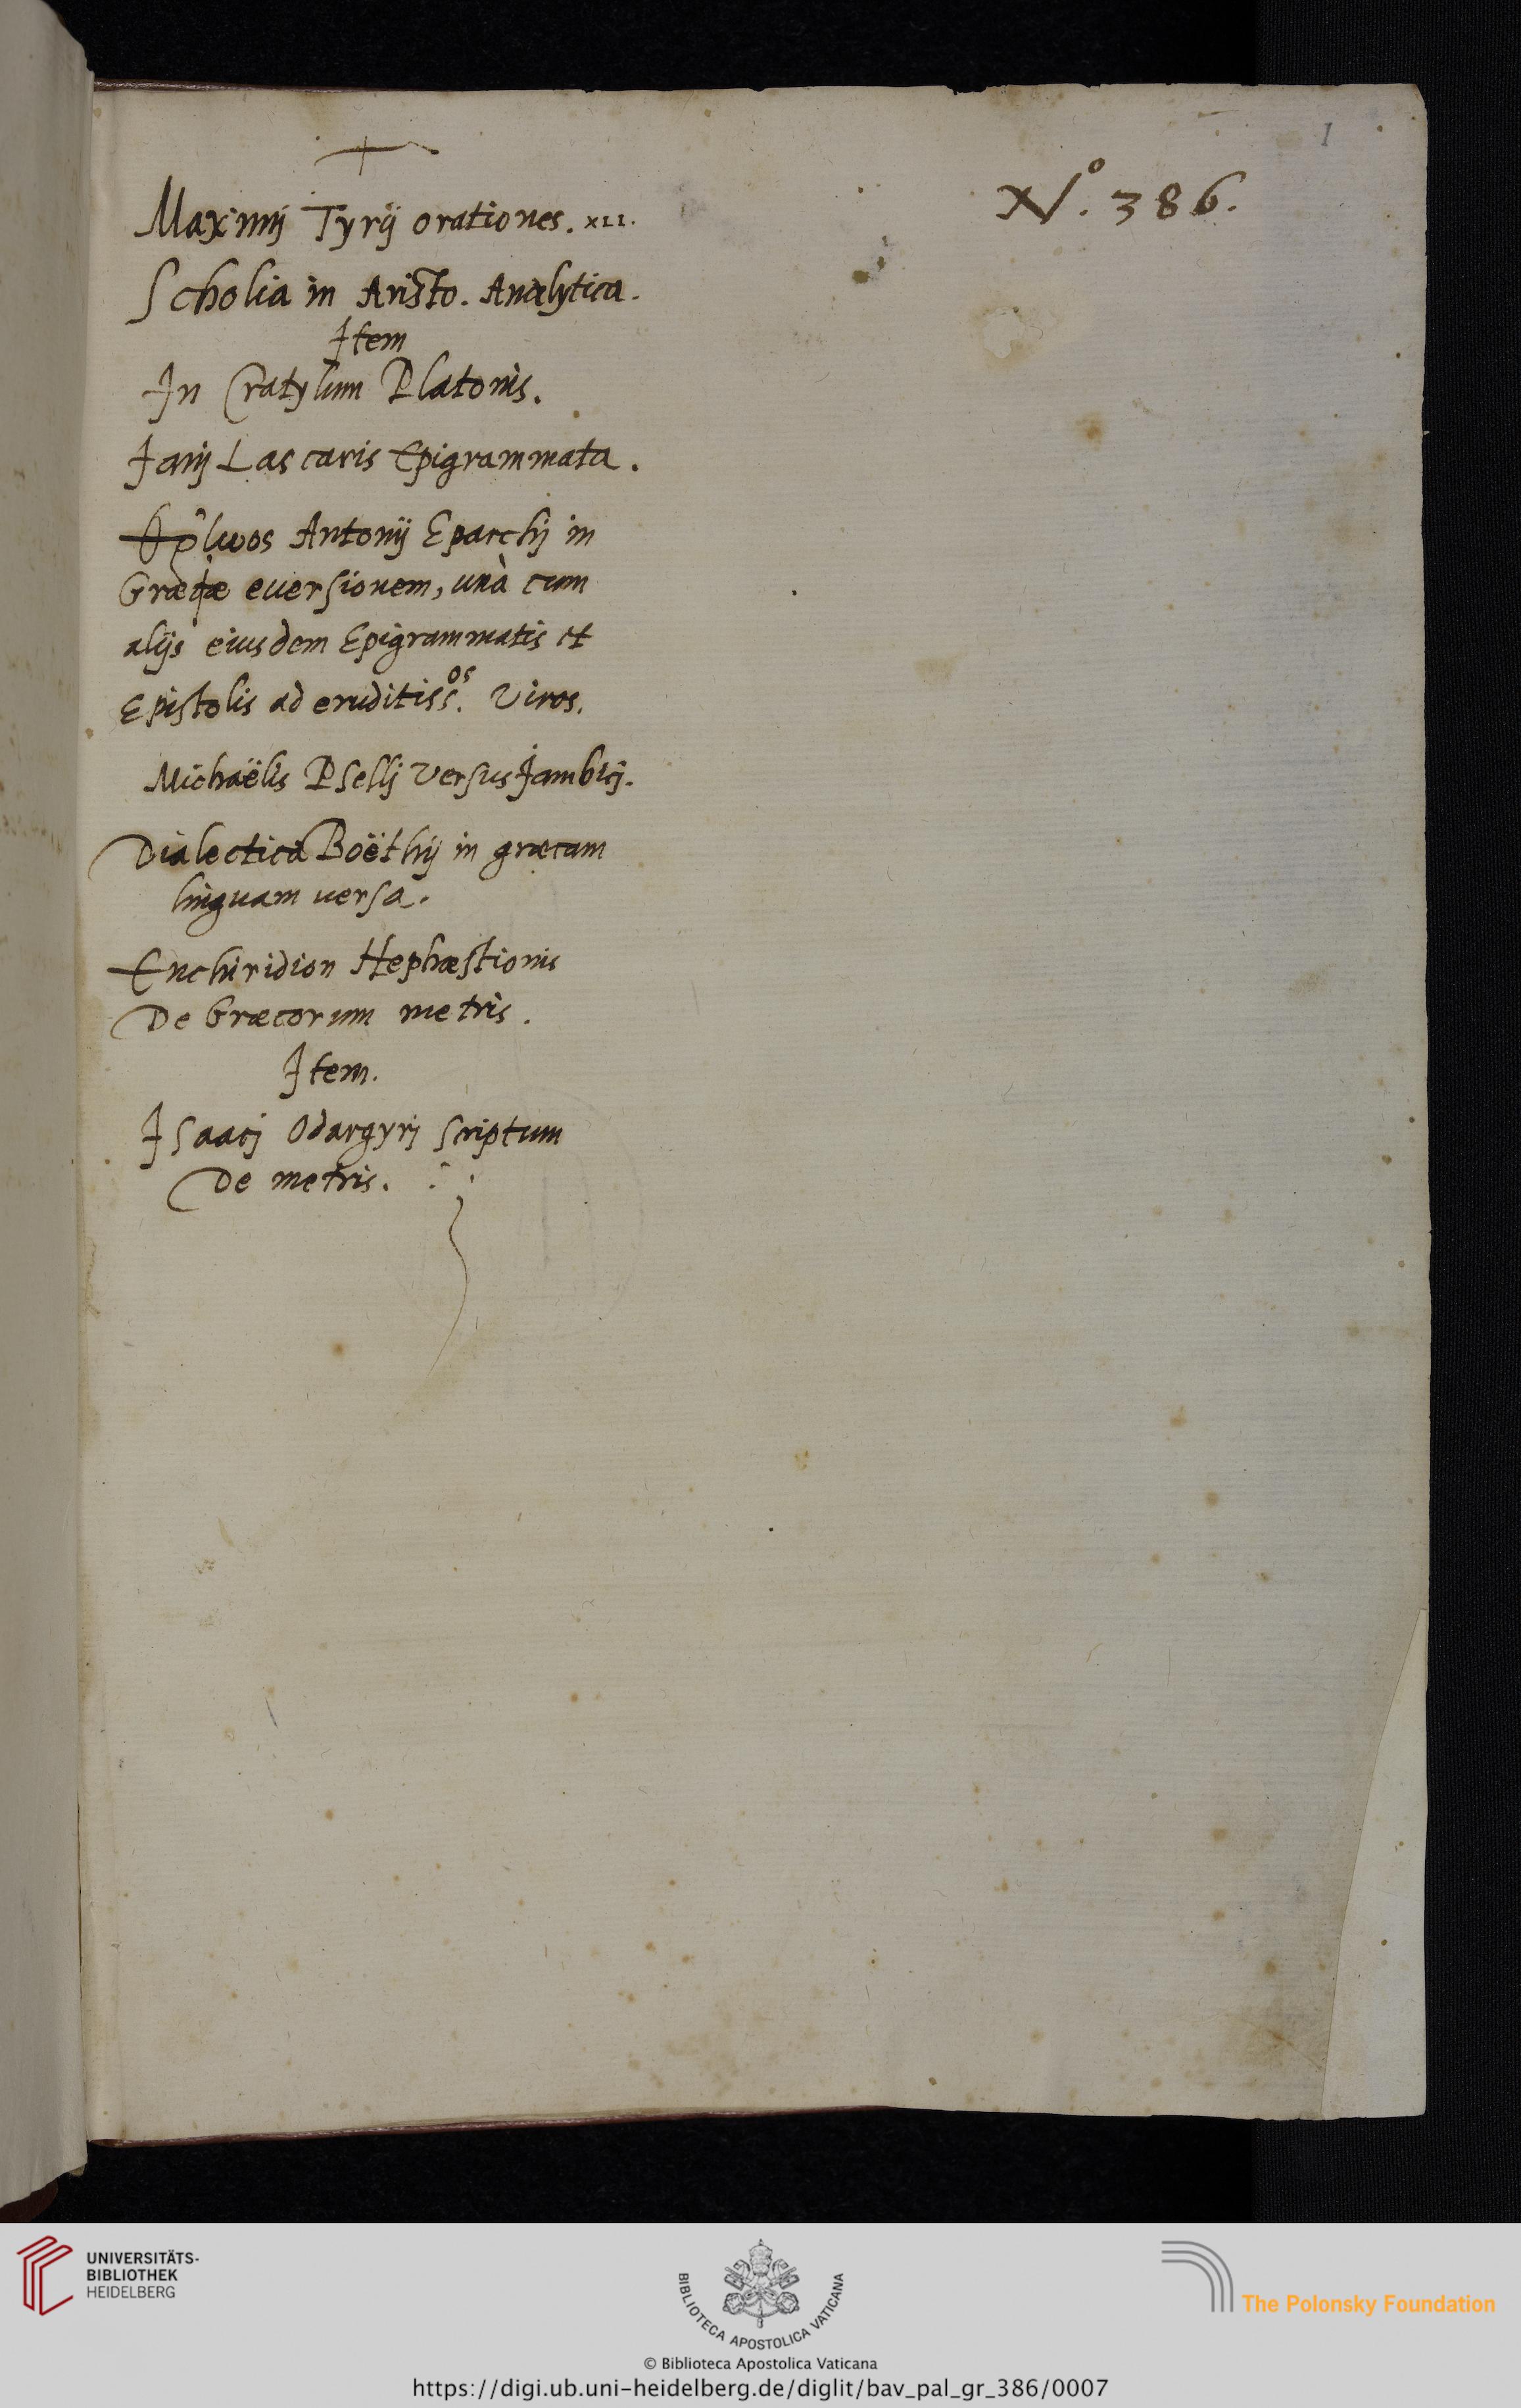 1
N.º 386.
Maximij Tyrij orationes. XLI.
Scholia in Aristo. Analytica.
Item
In Cratylum Platonis.
Janij Lascaris Epigrammata.
Antonij Eparchj in
Græciæ euersionem, unà cum
alijs eiusdem Epigrammatis et
Epistolis ad eruditiss.os Viros.
Michaëlis Psellj Versus Jambicj.
Dialectica Boëthij in græcam
linguam versa.
Enchiridion Hephæstionis
De Græcorum metris.
Item.
Isaacj Odargyrj scriptum
De metris.
UNIVERSITÄTS-
BIBLIOTHEK
HEIDELBERG
BIBLIOTECA APOSTOLICA VATICANA
The Polonsky Foundation
© Biblioteca Apostolica Vaticana
https://digi.ub.uni-heidelberg.de/diglit/bav_pal_gr_386/0007